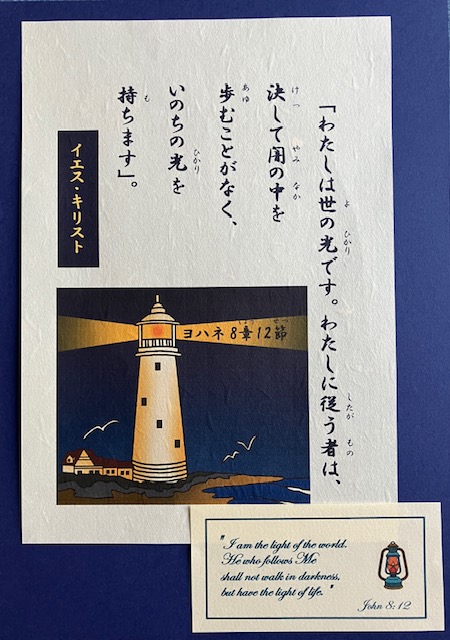 よ ひかり したが もの
「わたしは世の光です。わたしに従う者は、
けっ やみ なか
決して闇の中を
あゆ
歩むことがなく、
ひかり
いのちの光を
も
持ちます」。
イエス・キリスト
しょう せつ
ヨハネ8章12節
"I am the light of the world.
He who follows Me
shall not walk in darkness,
but have the light of life."
John 8:12